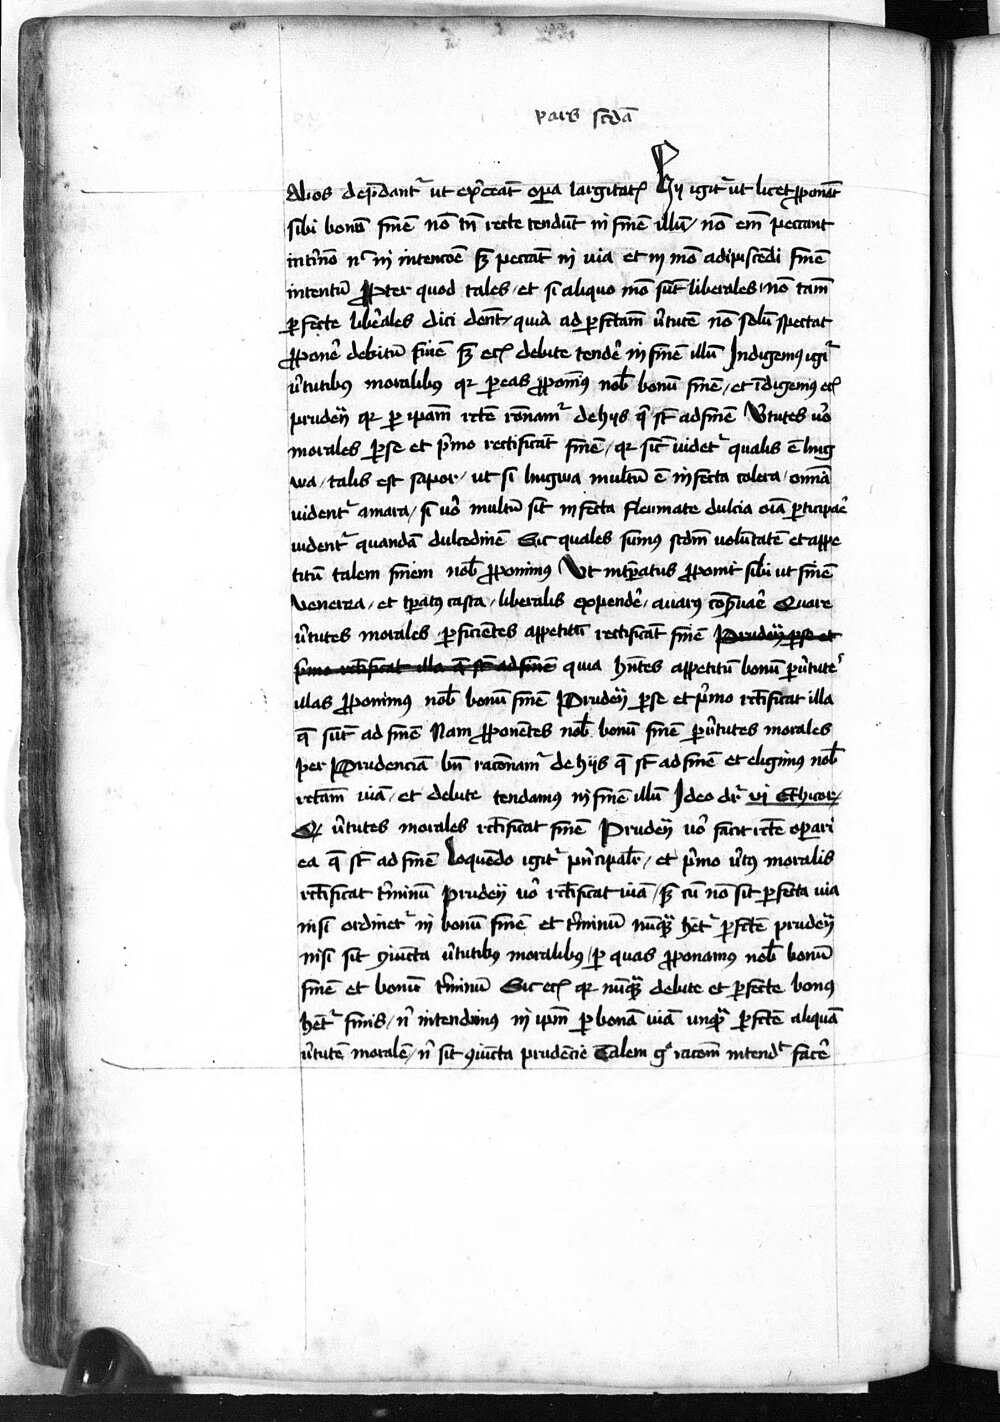 pars scda
Alios depdant ut exceat opa largitat Hij igit ut licet pponat
sibi bonu fine no tn recte tendut in fine illu / no em peccant
in tino nc in intencoe sz peccat in via et in mo adipiscedi fine
intentu ppter quod tales / et si aliquo mo sut liberales / no tam
pfecte liberales dici dent / quia ad pfctam vtute no solu spectat
pponer debitu fine sz ec debite tender in fine illu Indigem9 igr
vtutib9 moralib9 qr p eas pponim9 nob bonu fine / et idigem9 ec
prudeij qr p ipam rcte ronam de hijs q st ad fine Vtutes vo
morales p se et pmo rectificat fine / qr sic videt qualis e ling
wa / talis est sapor / ut si lingwa multu e infecta colera / omia
vident amara / si vo multu sit infecta fleumate dulcia oia pticipae
vident quanda dulcedine Sic quales sum9 scdm volutate et appe
titu talem finem nob pponim9 Ut intpatus pponit sibi ut fine
venerea / et tpat9 casta / liberalis expende / avarus coservae Quare
vtutes morales pficientes appetitu rectificat fine Prudeij p se et
pmo rctificat illa q st ad fine quia hntes appetitu bonu p vtute
illas pponimus nob bonu fine Prudeij p se et pmo rctificat illa
q sut ad fine Nam pponetes nob bonu fine p vtutes morales
per Prudencia bn raconam de hijs q st ad fine et eligim9 nob
rctam via / et debite tendamus in fine illu Ideo dr vi Ethicor /
Q vtutes morales rctificat fine Prudeij vo facit rcte operari
ea q st ad fine Loquendo igit principalr / et pmo vtus moralis
rctificat tminu Prudeij vo rctificat via / sz cu no sit pfecta via
nisi ordinet in bonu fine et tminu nuqz het pfcte prudeij
nisi sit 9iucta vtutib9 moralib9 / p quas pponam9 nob bonu
fine et bonu tminu Sic ec qr nuqz debite et pfecte bonus
het finis / n intendim9 in ipm p bona via unqz pfcte aliqua
vtute morale / n sit 9iucta prudecie Talem g racom intend facere